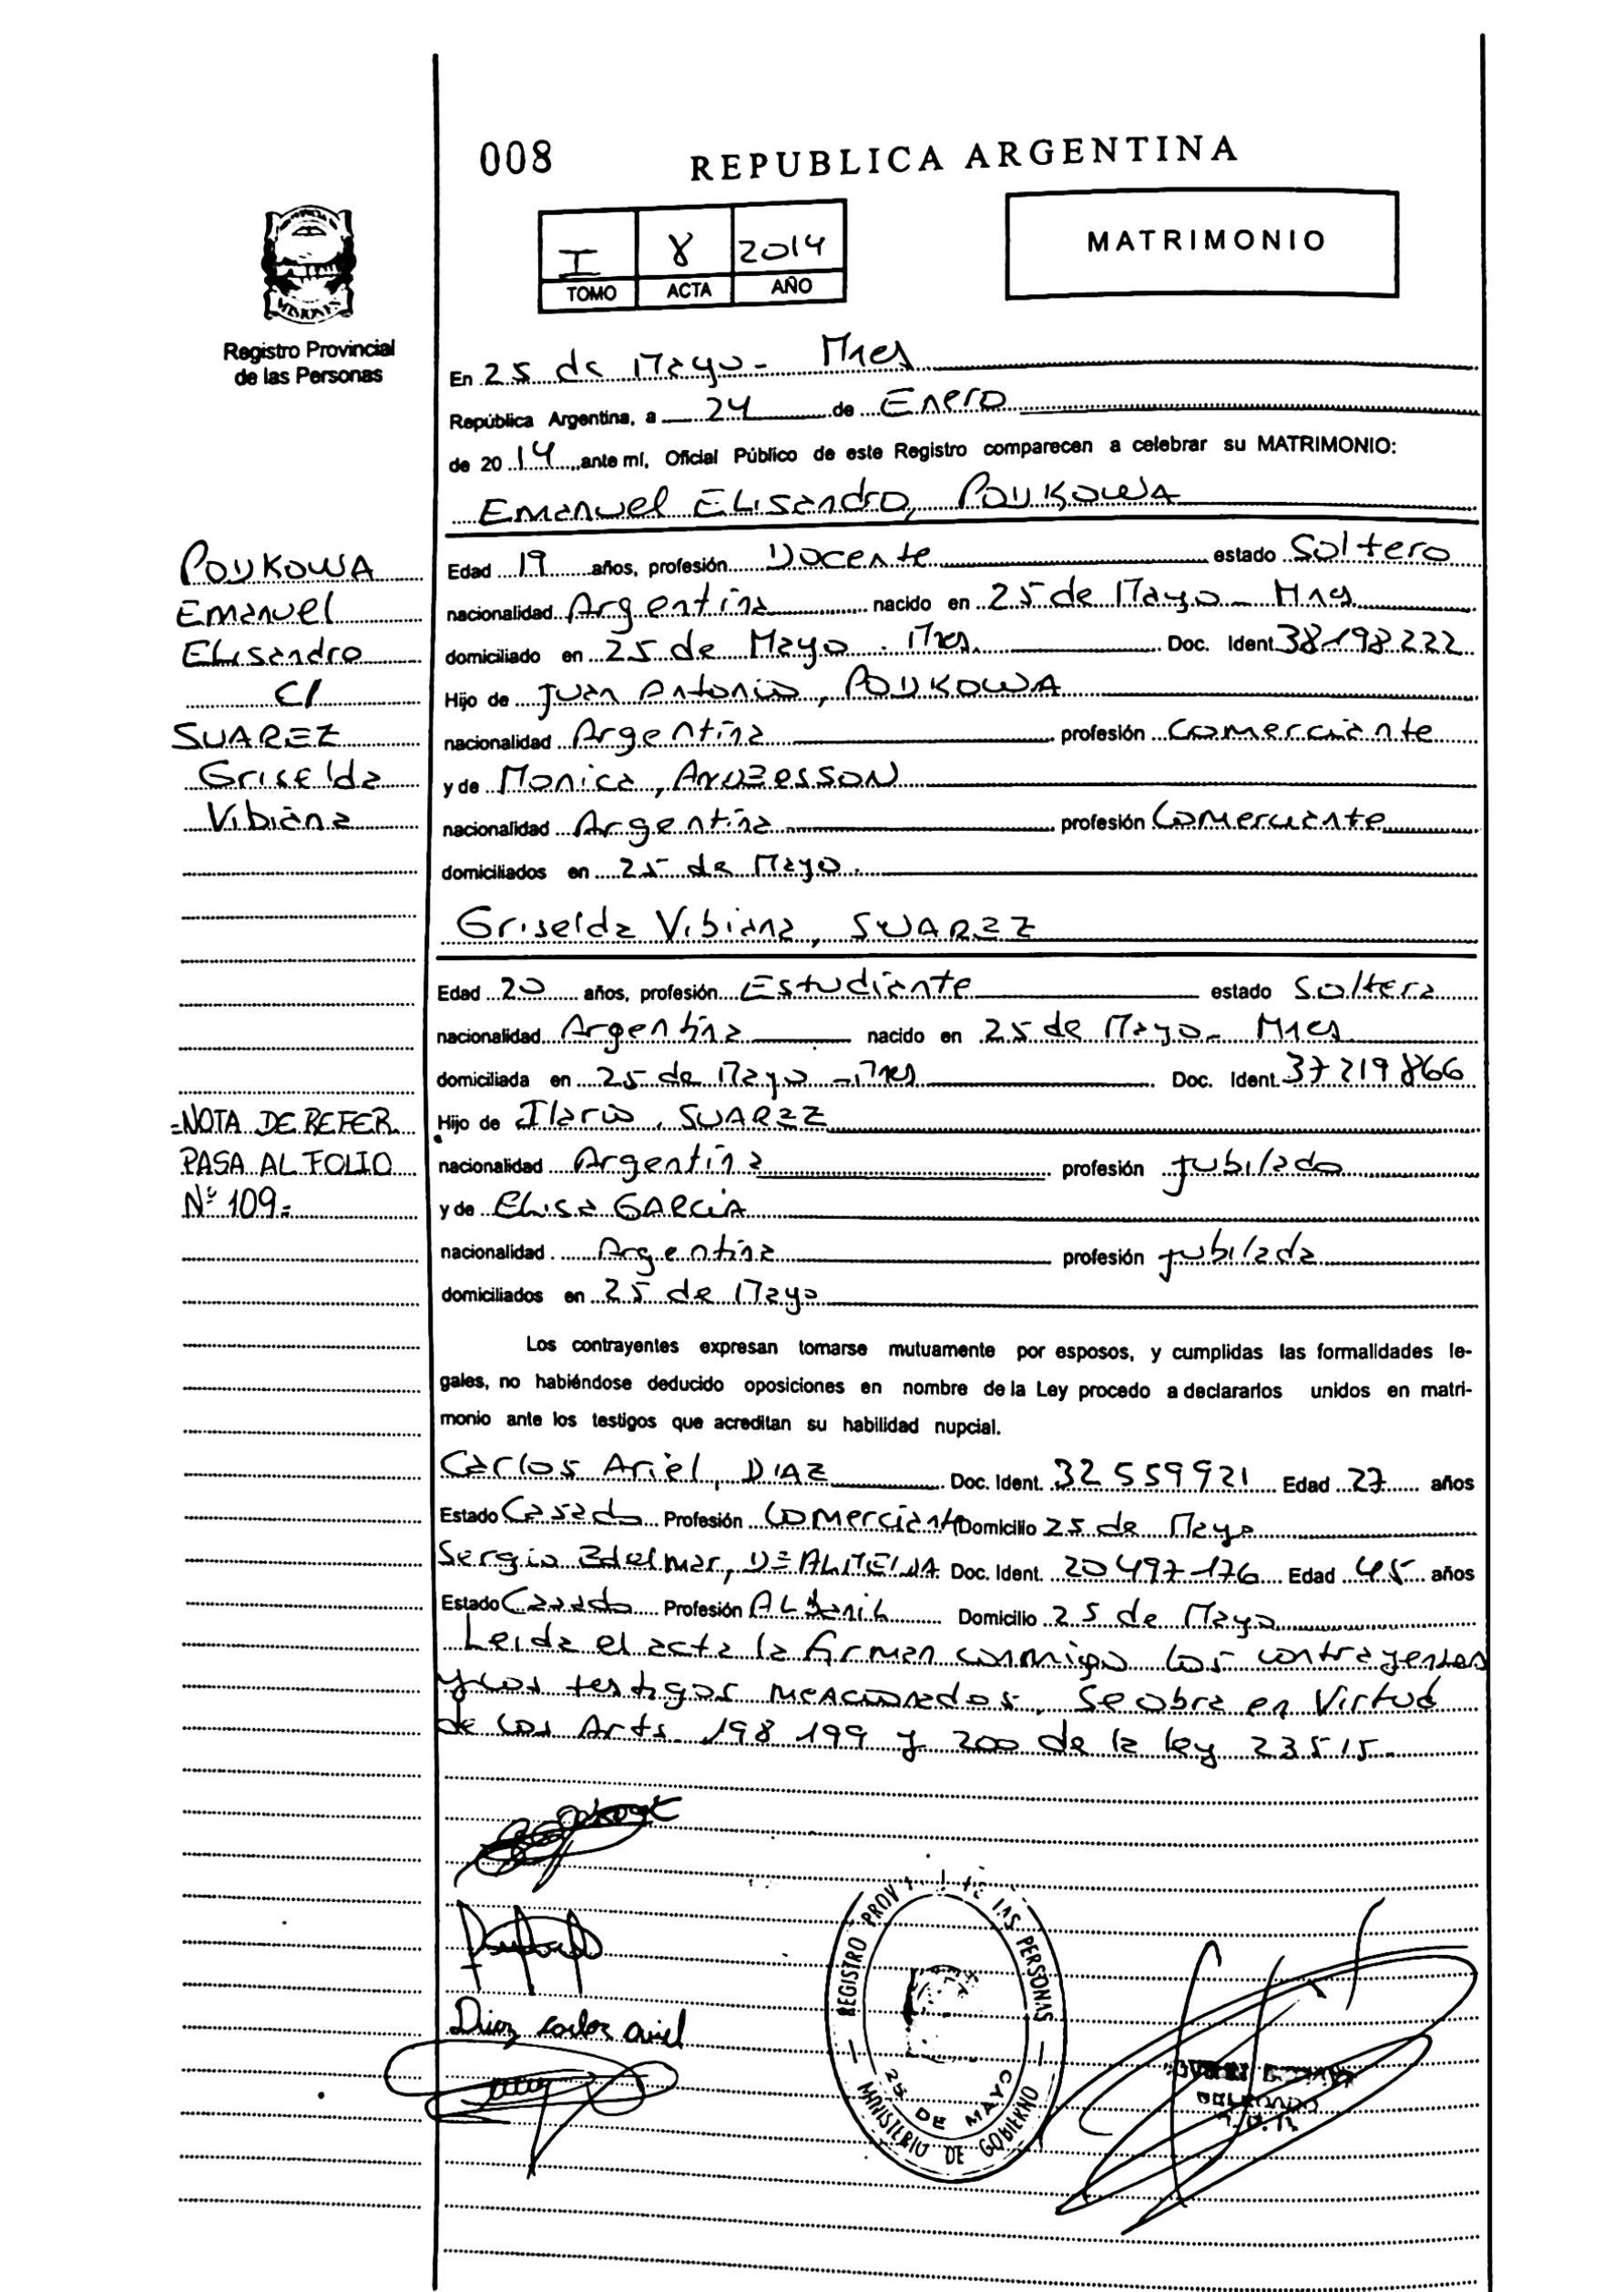 008
REPUBLICA ARGENTINA
I 8 2014
TOMO ACTA AÑO
MATRIMONIO
Registro Provincial
de las Personas
En 25 de Mayo - Mnes
República Argentina, a 24 de Enero
de 2014, ante mí, Oficial Público de este Registro comparecen a celebrar su MATRIMONIO:
Emanuel Elisandro, POUKOWA
POUKOWA
Emanuel
Elisandro
C/
SUAREZ
Griselda
Vibiana
Edad 19 años, profesión Docente estado Soltero
nacionalidad Argentina nacido en 25 de Mayo - Mnes
domiciliado en 25 de Mayo - Mnes. Doc. Ident. 38198222
Hijo de Juan Antonio, POUKOWA
nacionalidad Argentina profesión Comerciante
y de Monica,
nacionalidad Argentina profesión Comerciante
domiciliados en 25 de Mayo.
Griselda Vibiana, SUAREZ
Edad 20 años, profesión Estudiante estado Soltera
nacionalidad Argentina nacido en 25 de Mayo - Mnes
domiciliada en 25 de Mayo - Mnes Doc. Ident. 37219866
=NOTA DE REFER.
PASA AL FOLIO
Nº 109=
Hijo de Ilario, SUAREZ
nacionalidad Argentina profesión jubilado
y de Elisa GARCIA
nacionalidad Argentina profesión jubilada
domiciliados en 25 de Mayo
Los contrayentes expresan tomarse mutuamente por esposos, y cumplidas las formalidades le-
gales, no habiéndose deducido oposiciones en nombre de la Ley procedo a declararlos unidos en matri-
monio ante los testigos que acreditan su habilidad nupcial.
Carlos Ariel, DIAZ Doc. Ident. 32559921 Edad 27 años
Estado Casado Profesión Comerciante Domicilio 25 de Mayo
Sergio Edelmar, DE ALMEIDA Doc. Ident. 20497176 Edad 45 años
Estado Casado Profesión Albañil Domicilio 25 de Mayo
Leida el acta la firman conmigo los contrayentes
y los testigos mencionados. Se obra en Virtud
de los Arts. 198 199 y 200 de la ley 23515.
Diaz carlos ariel
REGISTRO PROV. DE LAS PERSONAS
25 DE MAYO
MINISTERIO DE GOBIERNO